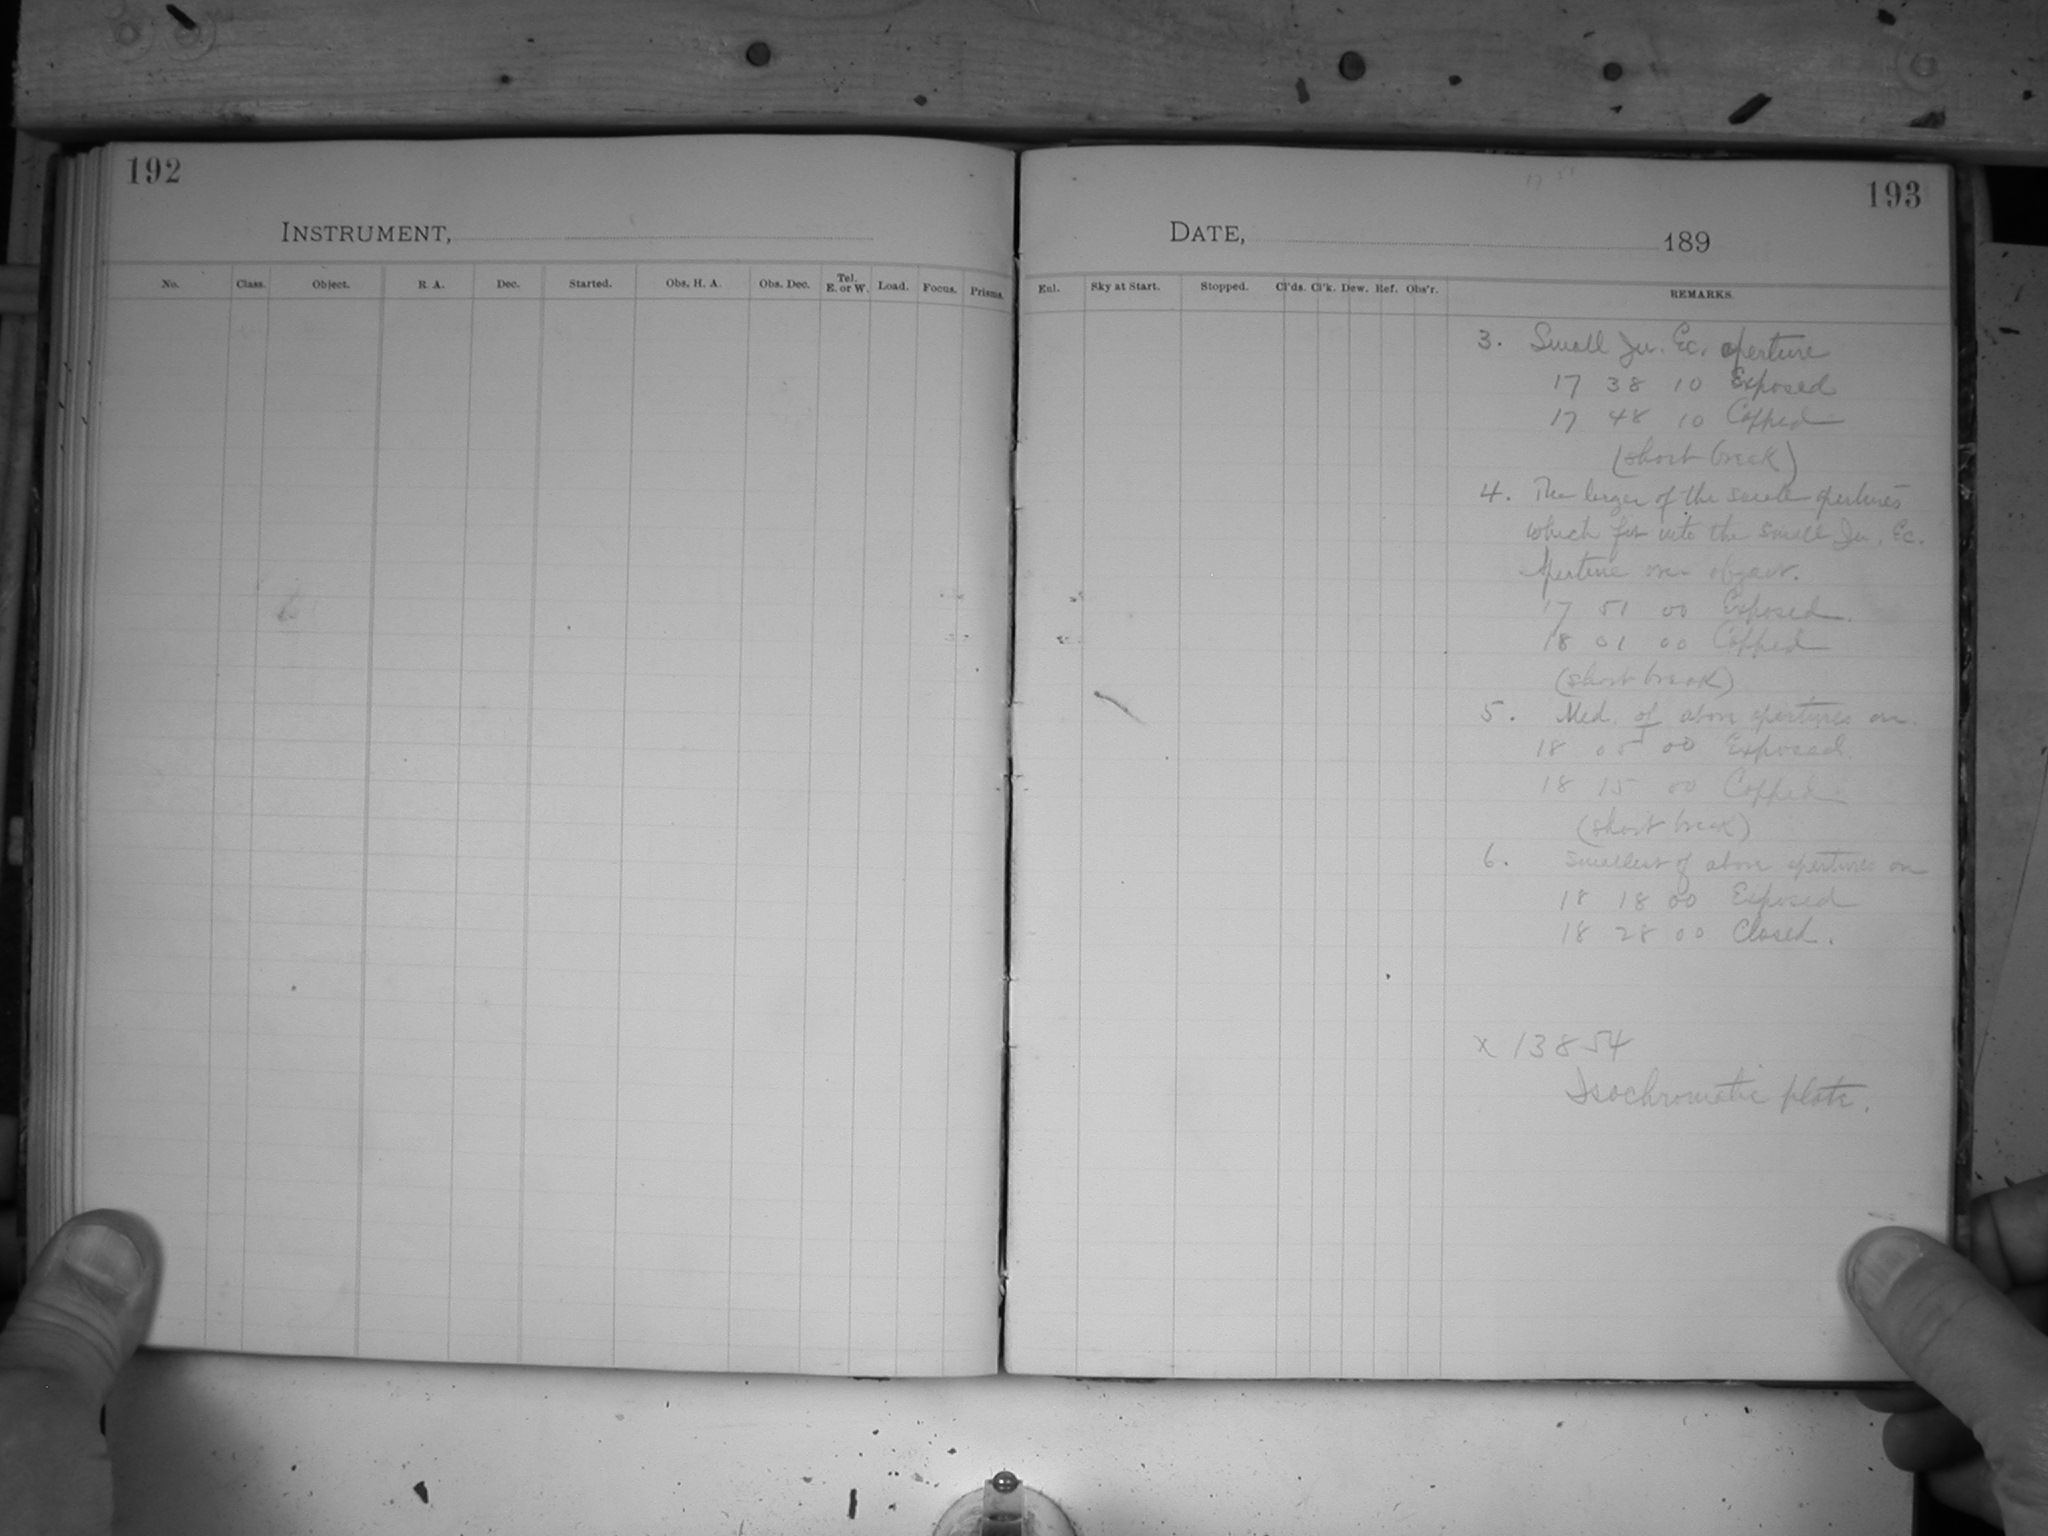 192
INSTRUMENT,
No. Class. Object. R. A. Dec. Started. Obs. H. A. Obs. Dec. Tel. E. or W. Load. Focus. Prisms.
17 51
193
DATE, 189
Enl. Sky at Start. Stopped. Cl'ds. Cl'k. Dew. Ref. Obs'r. REMARKS.
3. Small Ju. Ec. aperture
17 38 10 Exposed
17 48 10 Capped
(short break)
4. The larger of the small apertures
which fit into the small Ju. Ec.
Aperture over object.
17 51 00 Exposed.
18 01 00 Capped
(short break)
5. Med. of above apertures on.
18 05 00 Exposed.
18 15 00 Capped
(short break)
6. Smallest of above apertures on
18 18 00 Exposed
18 28 00 Closed.
X 13854
Isochromatic plate.